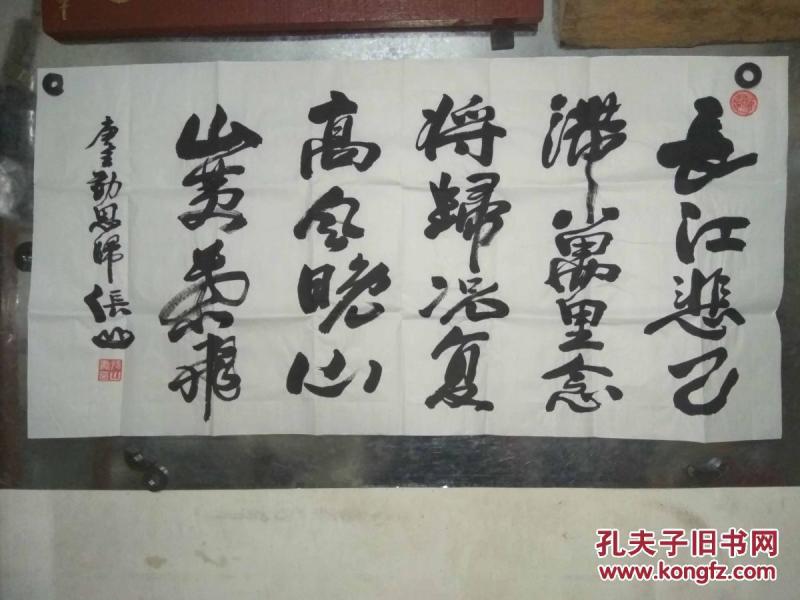 長江悲已
滞萬里念
将歸况复
高风晚山
山黄葉飛
唐王勃思归 張山
孔夫子旧书网
www.kongfz.com